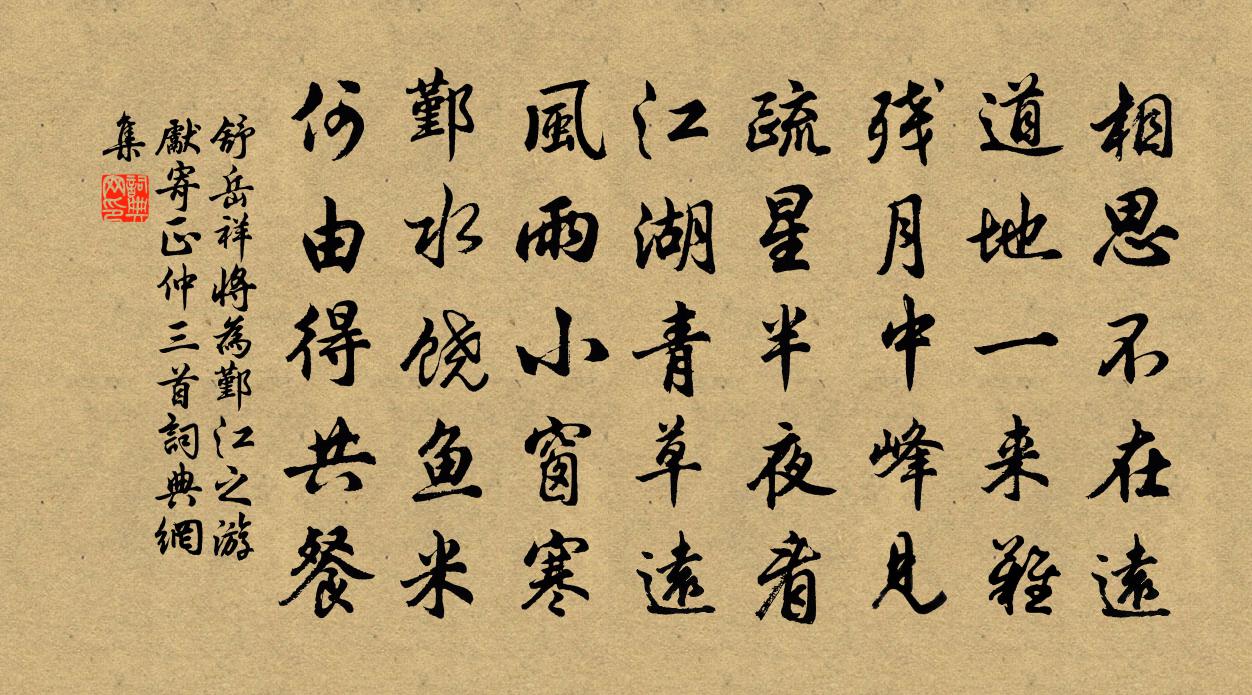 相思不在遠
道地一来難
残月中峰見
疏星半夜看
江湖青草遠
風雨小窗寒
鄞水饶鱼米
何由得共餐
舒岳祥將為鄞江之游
獻寄正仲三首詞典網
集
詞典
网印